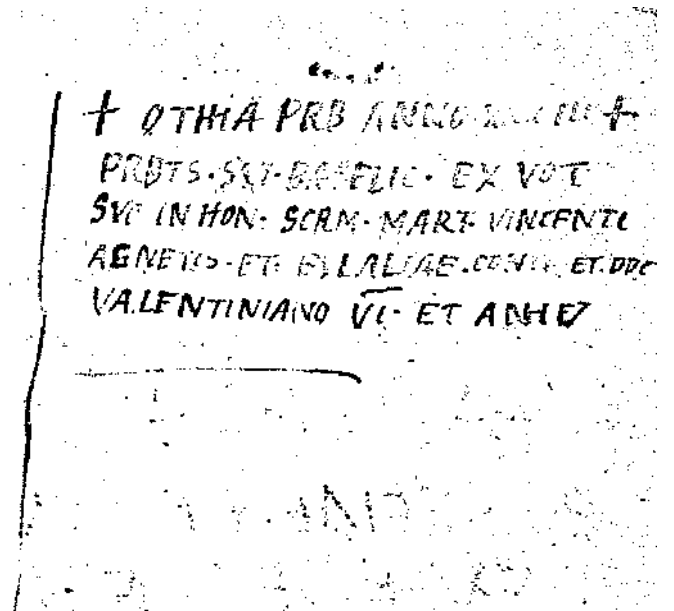 + OTHIA PRB ANNO III +
PRBTS · SVI · BASELIC · EX VOT
SVO IN HON · SCRM · MART · VINCENTI
AGNETIS · ET · EVLALIAE · CONST · ET · DDC
VALENTINIANO VI · ET ANHE7